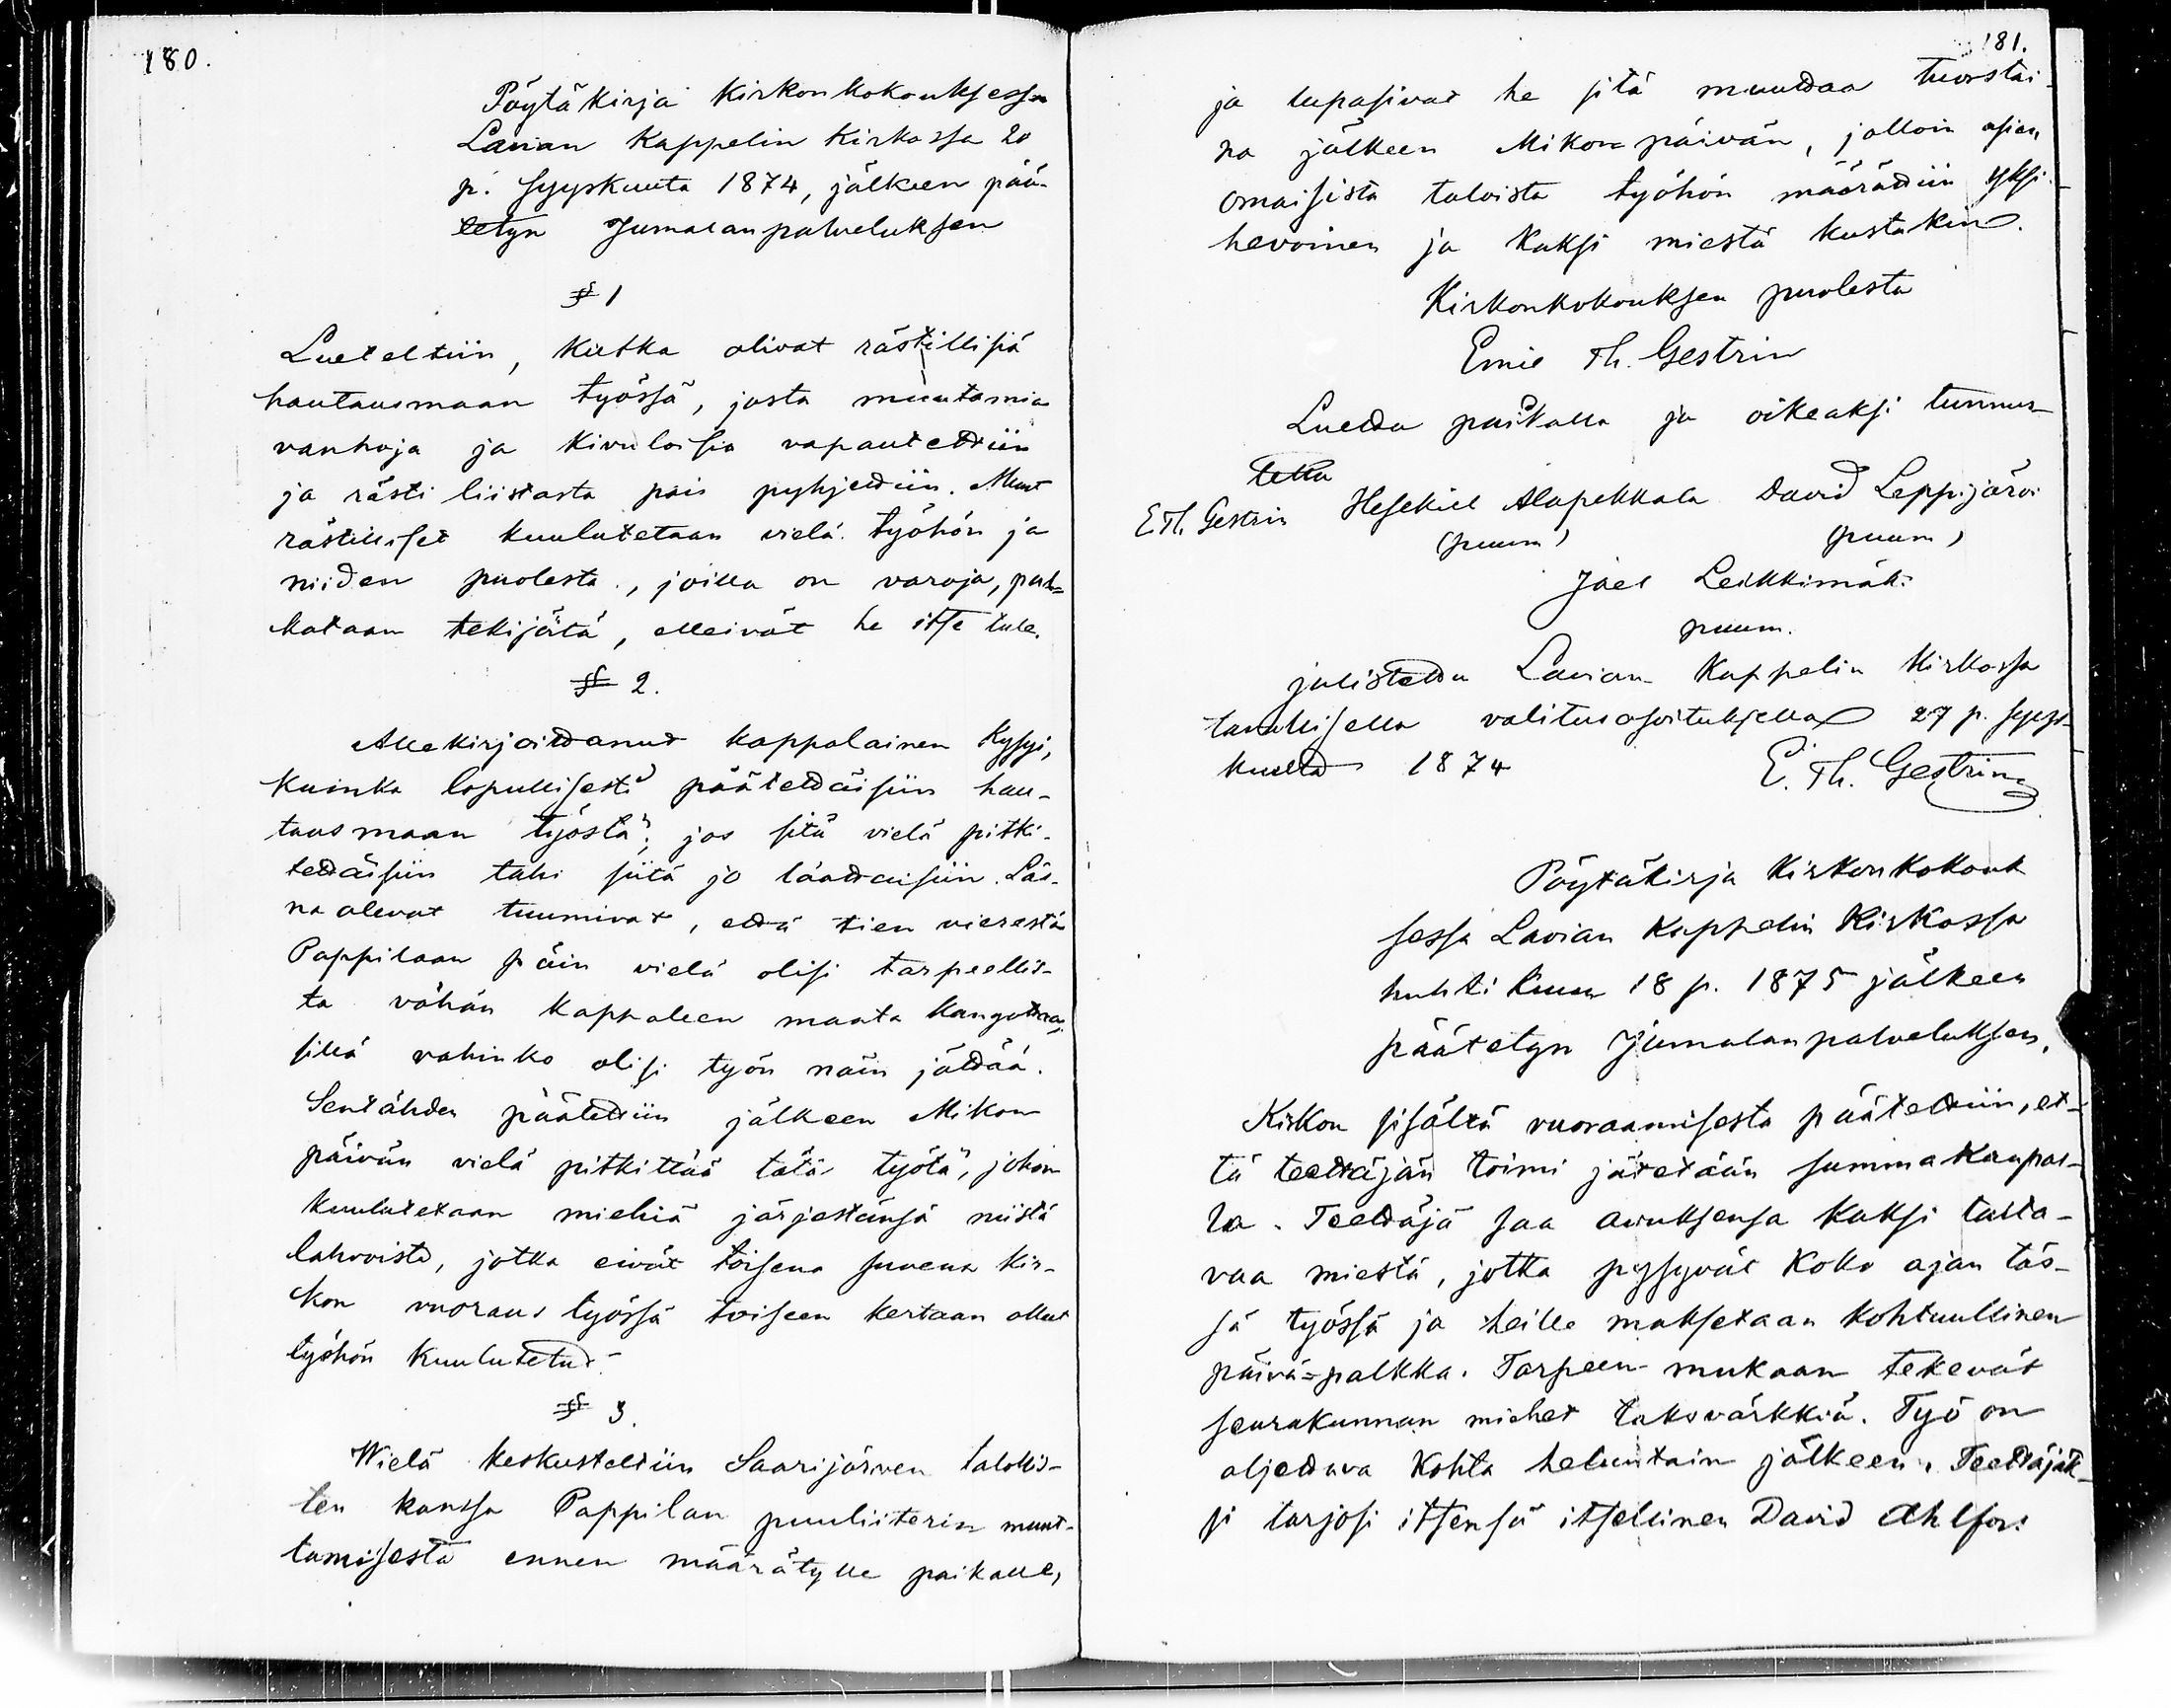 180.
Pöytäkirja Kirkonkokouksessa
Lavian Kappelin Kirkossa 20
p. Syyskuuta 1874, jälkeen pää-
tetyn Jumalanpalveluksen
§ 1
Lueteltiin, kutka olivat rästillisiä
hautausmaan työssä, josta muutamia
vanhoja ja kivuloisia vapautettiin
ja rästi liistasta pois pyhjettiin. Muut
rästilliset kuulutetaan vielä työhön ja
niiden puolesta, joilla on varoja, pal-
kataan tekijöitä, elleivät he itse tule.
§ 2.
Allekirjoittanut kappalainen kysyi,
kuinka lopullisesti päätettäisiin hau-
tausmaan työstä; jos sitä vielä pitki-
tettäisiin tahi siitä jo läattaisiin. Läs-
na olevat tuumivat, että tien vierestä
Pappilaan päin vielä olisi tarpeellis-
ta vähän kappaleen maata kangottaa,
sillä vahinko olisi työn näin jättää.
Sentähden päätettiin jälkeen Mikon
päivän vielä pitkittää tätä työtä, johon
kuulutetaan miehiä järjestänsä niistä
lahvoista, jotka eivät toisena suvena Kir-
kon vuoraus työssä toiseen kertaan olleet
työhön kuulutetut.
§ 3.
Wielä keskusteltiin Saarijärven talollis-
ten kanssa Pappilan puuliiterin muut-
tamisesta ennen määrätylle paikalle,
181.
ja lupasivat he sitä muuttaa tuorstai-
na jälkeen Mikon päivän, jolloin asian
omaisista taloista työhön määrättiin yksi
hevoinen ja kaksi miestä kustakin.
Kirkonkokouksen puolesta
Emil Th. Gestrin
Luettu paikalla ja oikeaksi tunnus-
tettu
E.Th. Gestrin Hesekiel Alapekkala David Leppijärvi
(puum) (puum)
Joel Leikkimäki
puum.
julistettu Lavian Kappelin Kirkossa
laillisella valitusosoituksella 27 p. syys-
kuuta 1874 E. Th. Gestrin
Pöytäkirja Kirkonkokouk
sessa Lavian Kappelin Kirkossa
huhti kuun 18 p. 1875 jälkeen
päätetyn Jumalanpalveluksen.
Kirkon sisältä vuoraamisesta päätettiin, et-
tä teettäjän toimi jätetään summakaupal-
la. Teettäjä saa avuksensa kaksi taita-
vaa miestä, jotka pysyvät koko ajan täs-
sä työssä ja heille maksetaan kohtuullinen
päivä=palkka. Tarpeen mukaan tekevät
seurakunnan miehet taksvärkkiä. Työ on
aljettava kohta heluntain jälkeen. Teettäjäk-
si tarjosi itsensä itsellinen David Ahlfors